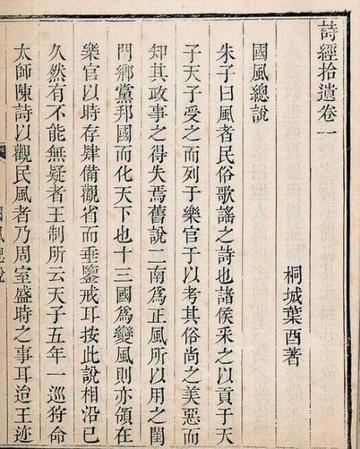 詩經拾遺卷一
桐城葉酉著
國風總說
朱子曰風者民俗歌謠之詩也諸侯采之以貢于天
子天子受之而列于樂官于以考其俗尚之美惡而
知其政事之得失焉舊說二南為正風所以用之閨
門鄉黨邦國而化天下也十三國為變風則亦領在
樂官以時存肄備觀省而垂鑒戒耳按此說相沿已
久然有不能無疑者王制所云天子五年一巡狩命
太師陳詩以觀民風者乃周室盛時之事耳迨王迹
國風總說